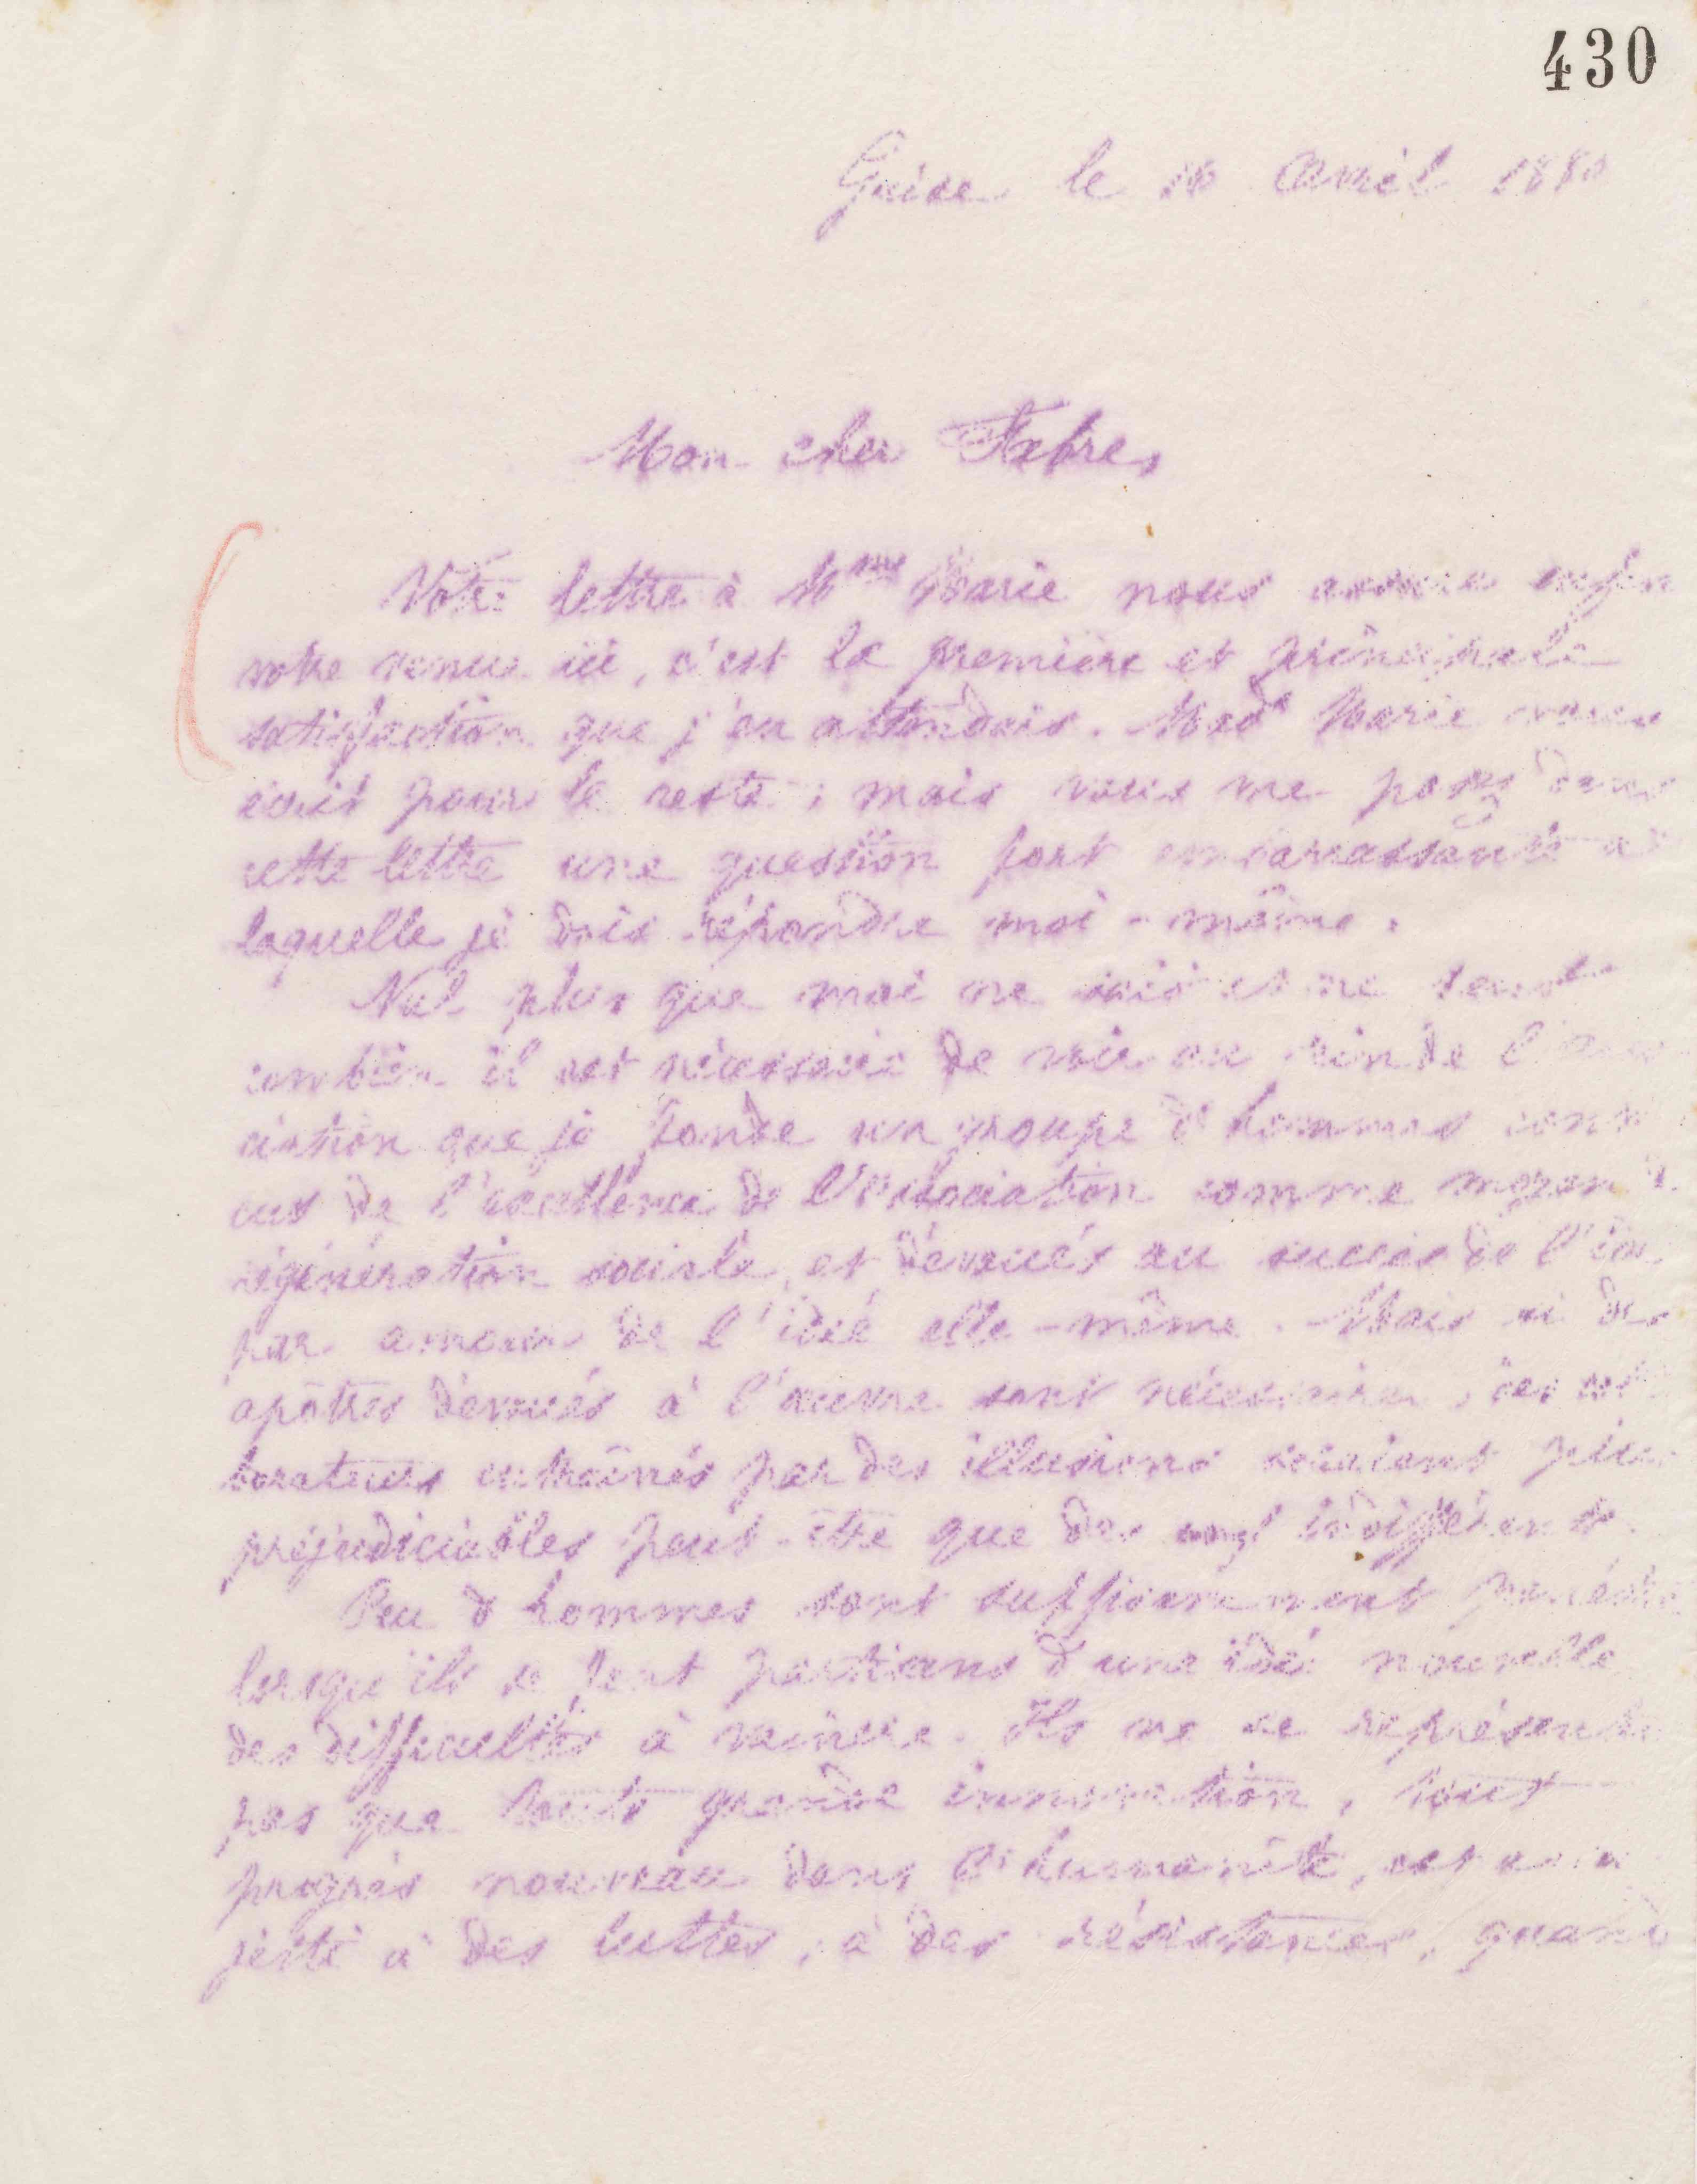 430
Guise le 10 Avril 1880
Mon cher Fabre,
Votre lettre à Mme Marie nous assure enfin
votre venue ici, c'est la première et principale
satisfaction que j'en attendais. Made Marie vous
écrit pour le reste ; mais vous me posez dans
cette lettre une question fort embarrassante à
laquelle je dois répondre moi-même.
Nul plus que moi ne sait et ne sent
combien il est nécessaire de voir au sein de l'
ciation que je fonde un groupe d'hommes
cus de l'excellence de l'association comme moyen de
régénération sociale, et dévoués au succès de l'idée
par amour de l'idée elle-même. Mais si des
apôtres dévoués à l'œuvre sont nécessaires, des
borateurs entraînés par des illusions seraient plus
préjudiciables peut-être que des indifférents.
Peu d'hommes sont suffisamment pénétrés
lorsqu'ils se font partisans d'une idée nouvelle
des difficultés à vaincre. Ils ne se représentent
pas que toute grande innovation, tout
progrès nouveau dans l'humanité, est
jetti à des luttes, à des résistances, quand